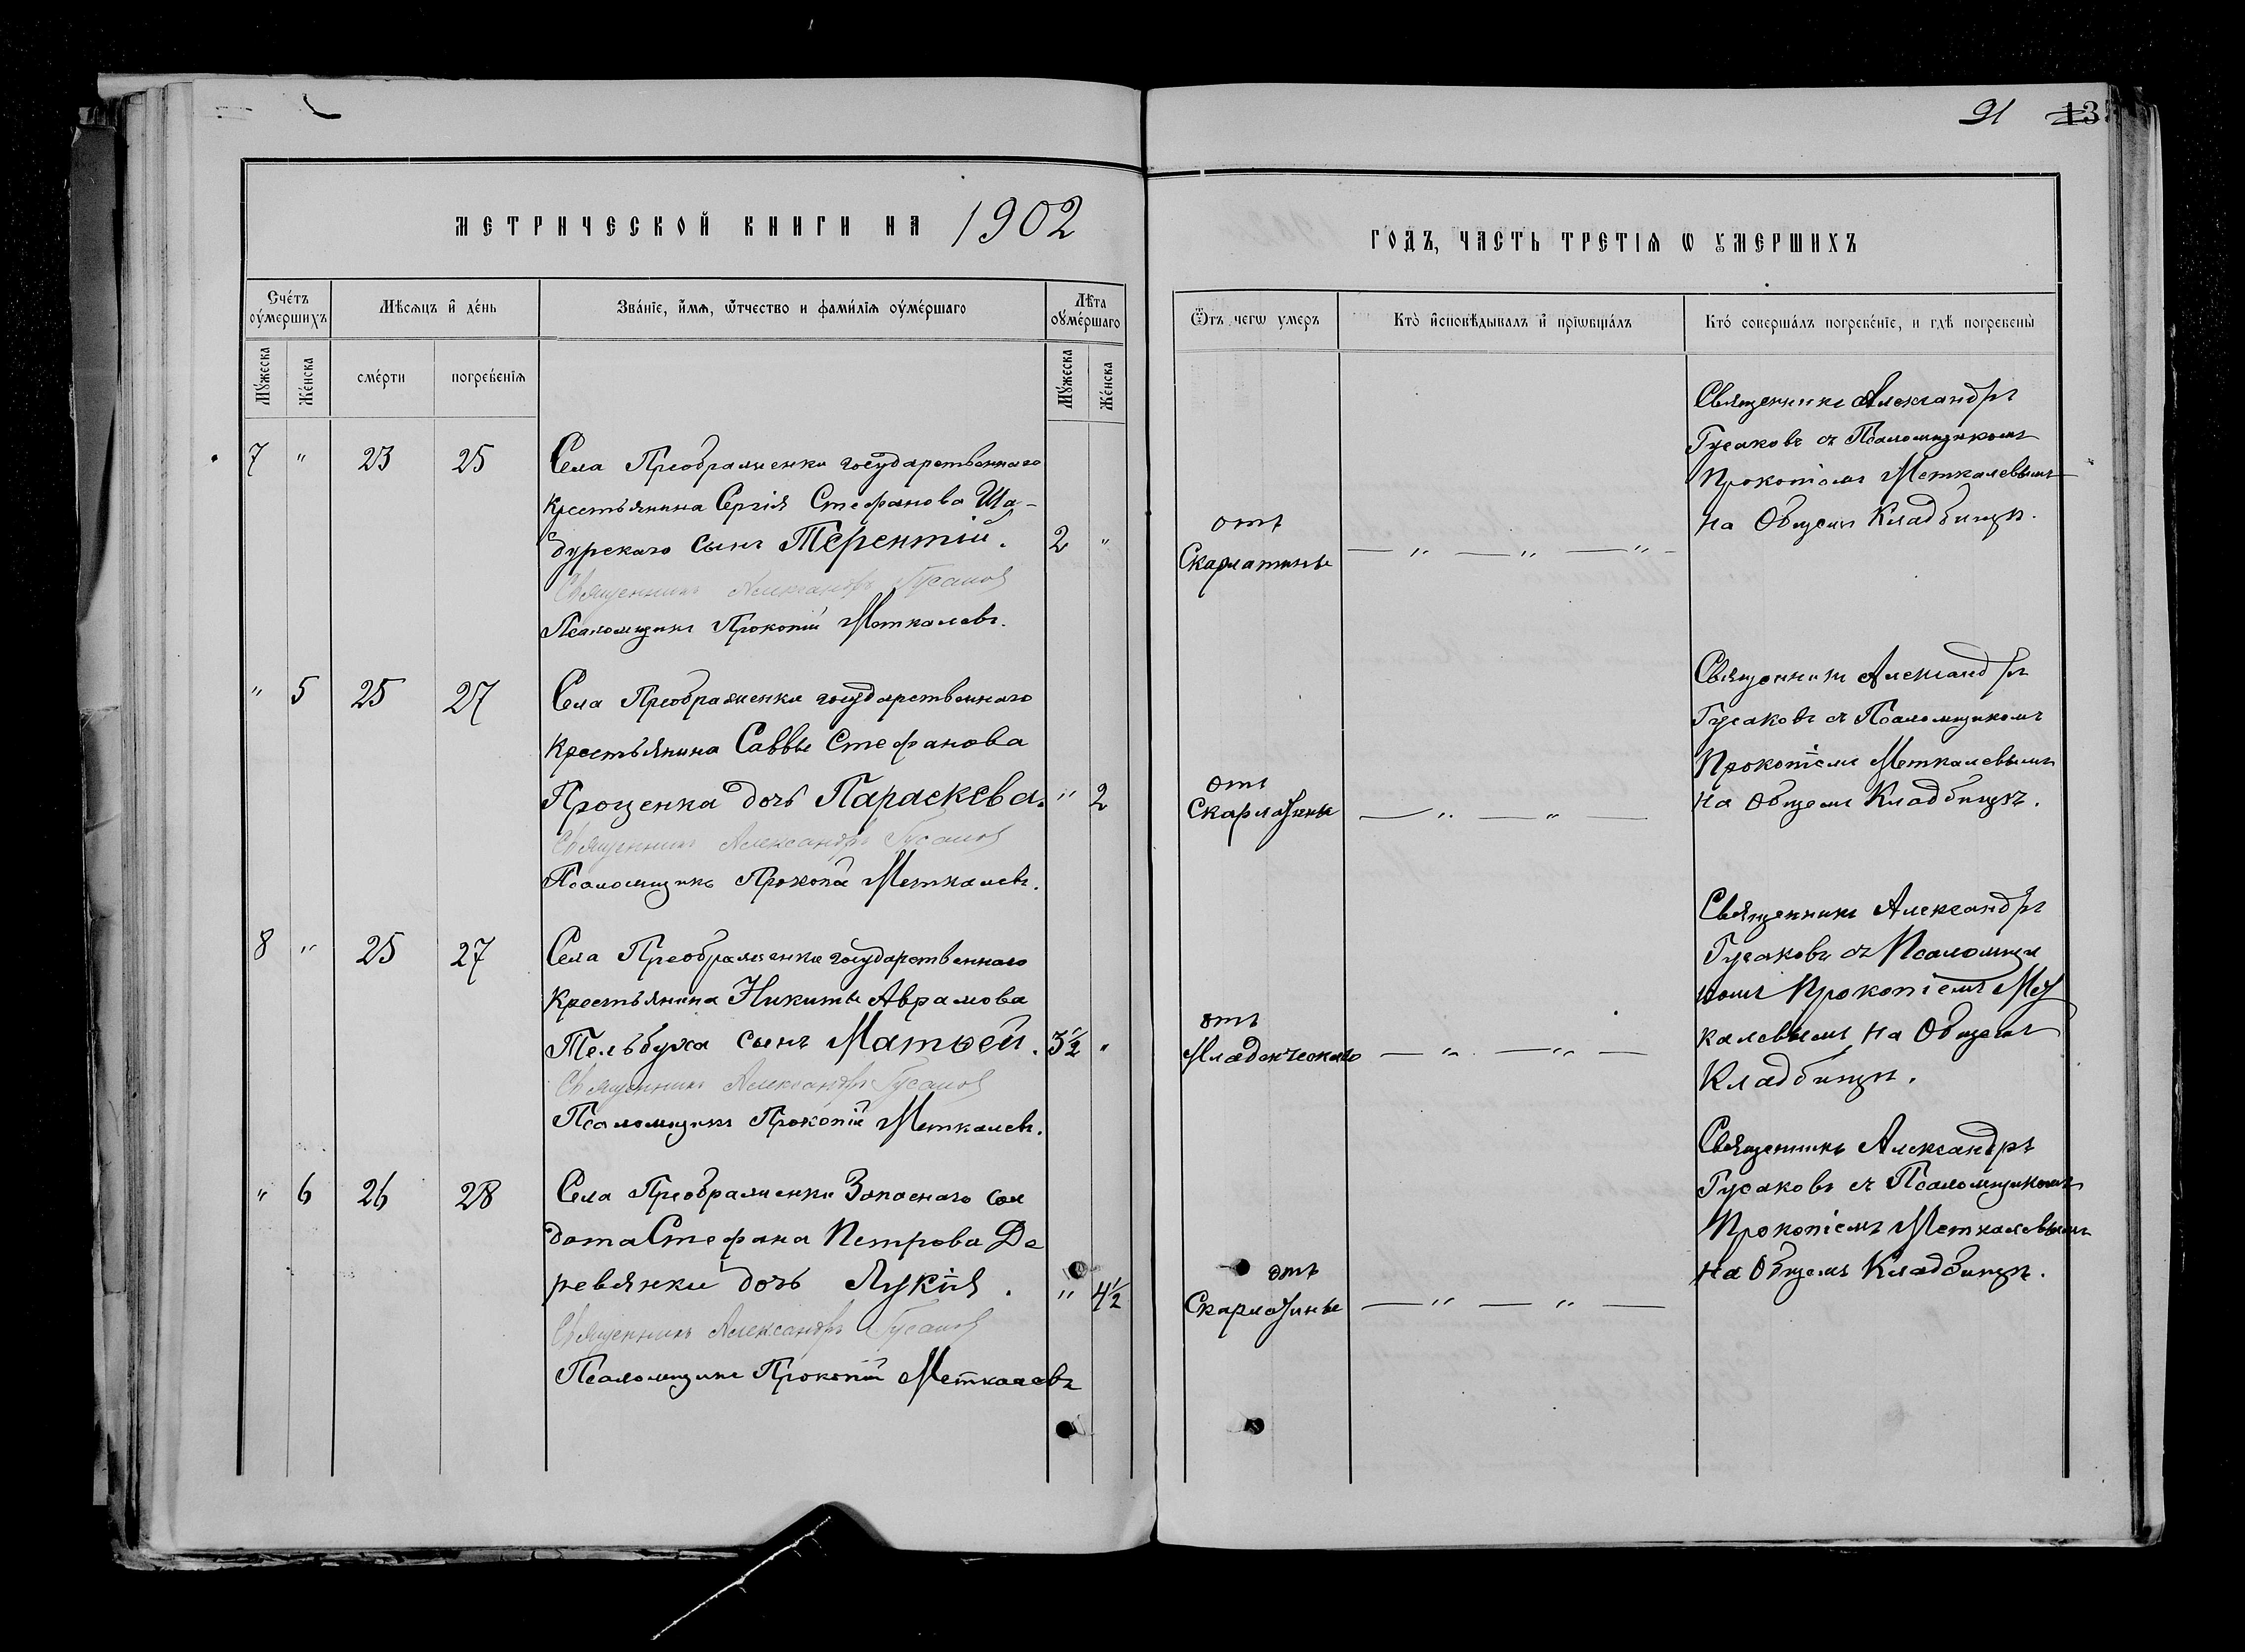 91 135
МЕТРИЧЕСКОЙ КНИГИ НА 1902
ГОДЪ, ЧАСТЬ ТРЕТІѦ Ѡ ОУМЕРШИХЪ
Счéтъ оу҆мершихъ
Мѣсѧцъ и҆ дéнь
Звáнїе, и҆́мѧ, ѿтчество и фамѝлїѧ оу҆мéршаго
Лѣта оу҆мéршаго
Ѿтъ чегѡ умеръ
Ктò и҆сповѣ́дывалъ и҆ прїѡбщáлъ
Ктó совершáлъ погребéнїе, и гдѣ погребены̀
Мꙋ́жеска
Жéнска
смéрти
погребéнїѧ
Мꙋ́жеска
Жéнска
7 " 23 25
Села Преображенки государственнаго
крестьянина Сергія Стефанова Ша-
дурскаго сынъ Терентій. 2 "
Священникъ Александръ Гусаков
Псаломщикъ Прокопій Меткалевъ.
отъ
Скарлатины
— " — " — " —
Священникъ Александръ
Гусаковъ съ Псаломщикомъ
Прокопіемъ Меткалевымъ
на Общемъ Кладбищѣ.
" 5 25 27
Села Преображенки государственнаго
крестьянина Саввы Стефанова
Проценка дочь Параскева. " 2
Священникъ Александръ Гусаков
Псаломщикъ Прокопій Меткалевъ.
отъ
Скарлатины
— " — " —
Священникъ Александръ
Гусаковъ съ Псаломщикомъ
Прокопіемъ Меткалевымъ
на Общемъ Кладбищѣ.
8 " 25 27
Села Преображенки государственнаго
крестьянина Никиты Аврамова
Тельбуха сынъ Матѳей. 3½ "
Священникъ Александръ Гусаков
Псаломщикъ Прокопій Меткалевъ.
отъ
Младенческаго
— " — " —
Священникъ Александръ
Гусаковъ съ Псаломщи
комъ Прокопіемъ Мет
калевымъ на Общемъ
Кладбищѣ.
" 6 26 28
Села Преображенки Запаснаго сол
дата Стефана Петрова Де
ревянки дочь Лукія. " 4½
Священникъ Александръ Гусаков
Псаломщикъ Прокопій Меткалевъ
отъ
Скарлатины
— " — " —
Священникъ Александръ
Гусаковъ съ Псаломщикомъ
Прокопіемъ Меткалевымъ
на Общемъ Кладбищѣ.